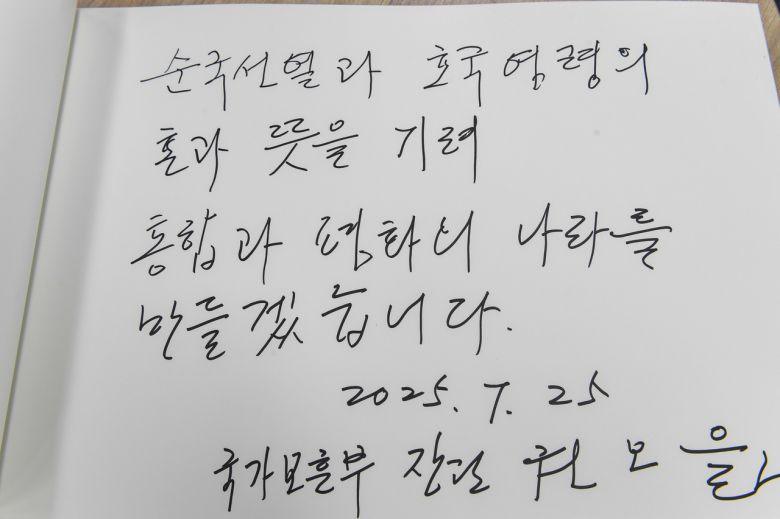 순국선열과 호국영령의
혼과 뜻을 기려
통합과 평화의 나라를
만들겠습니다.
2025. 7. 25
국가보훈부 장관 권오을